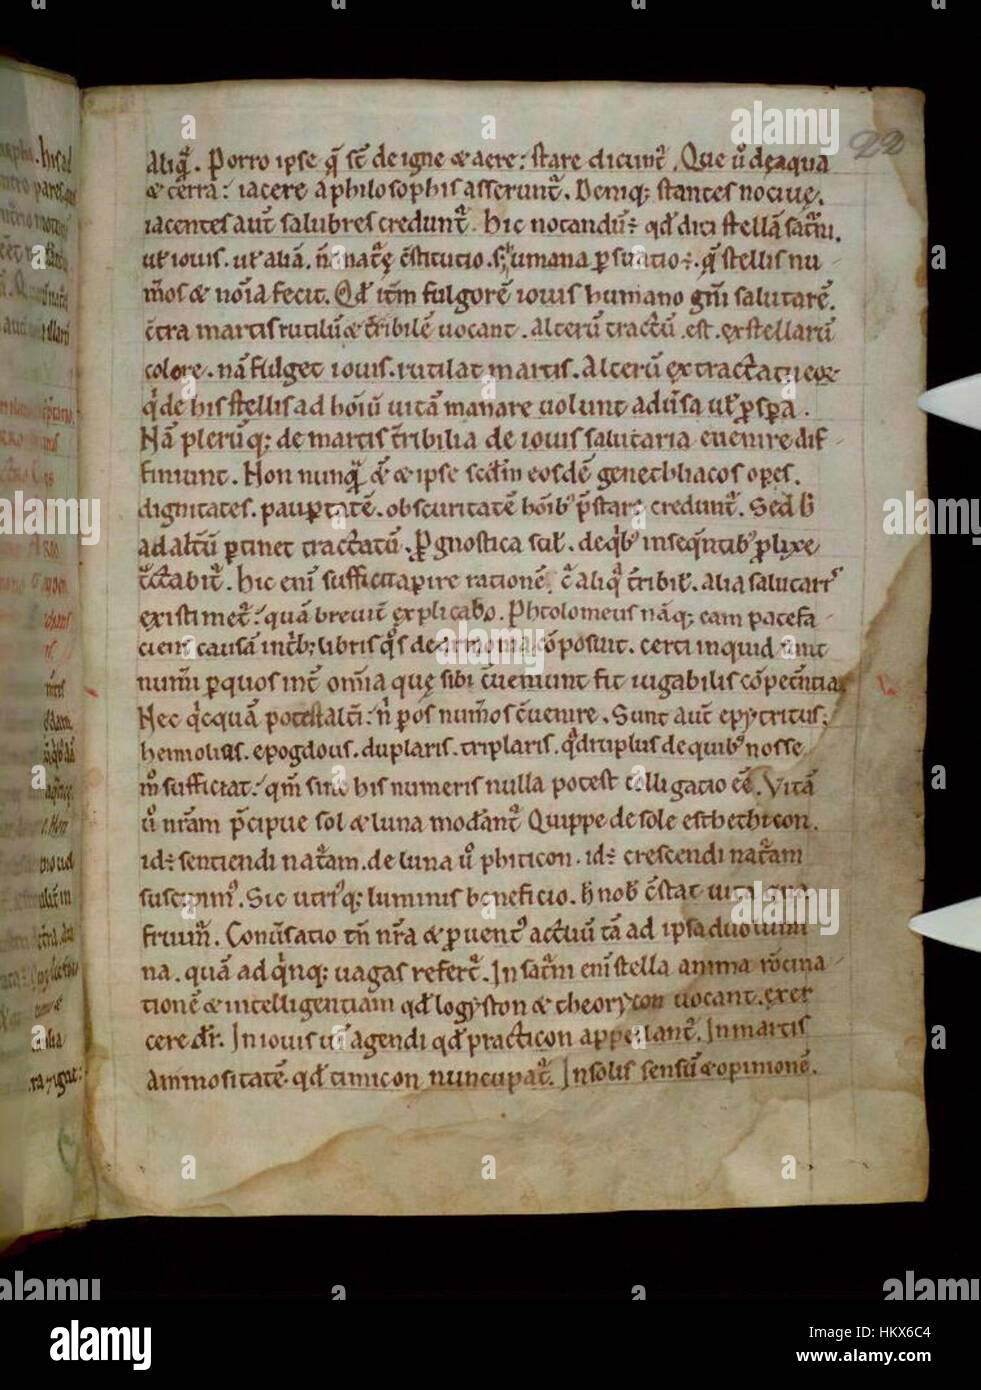 22
aliq̄. Porro ipse q̄ st̄ de igne & aere: stare dicunt᷑. Que ů de aqua
& terra: iacere aphilosophis asserunt᷑. Deniq; stantes nociuę.
iacentes aut̄ salubres credunt᷑. hic notandū: qd̄ dici stellā sat᷑ni.
uł iouis. uł aliā. n̄ nat᷑ę c̄stitutio. humana ꝑsuatio. q̄ stellis nu
m̄os & noīa fecit. Qd̄ itē fulgorē iouis humano gn̄i salutarē.
c̄tra martis rutilū & t᷑ribilē uocant. Alterū tractū est. ex stellarū
colore. nā fulget iouis. rutilat martis. Alterū ex tractatu eoꝝ
q̍ de his stellis ad hoīū uitā manare uolunt adūsa uł ꝓspa.
Nā pleruq; de martis t᷑ribilia de iouis salutaria euenire dif
finiunt. Non nunq̄ & ipse eosdē genethliacos opes.
dignitates. pauꝑtatē. obscuritatē hoīb; p̄stare credunt᷑. Sed h̄
ad altū ꝑtinet tractatū. Ꝓgnostica de q̍b; in seq̄ntib; ꝓlixe
t᷑ctabit᷑. hic eni sufficit apire rationē. c̄ aliq̍ t᷑ribił. alia salutaris
existimet᷑: quā breuit̄ explicabo. Phtolomeus nāq; eam patefa
ciens causā in t᷑b; libris q̍s de armonia cōposuit. certi inquid sunt
num̄i ꝑ quos int̄ om̄ia quę sibi c̄ueniunt fit iugabilis cōpetn̄tia.
Nec q̍cquā potest alt̄i: n̄ ꝑ os num̄os c̄uenire. Sunt aut̄ epytritus.
hemiolius. epogdous. duplaris. triplaris. q̍druplus de quib; nosse
m̊ sufficiat: qm̄ sine his numeris nulla potest colligatio eē. Vitā
ů nr̄am p̄cipue sol & luna modant᷑ Quippe de sole esthethicon.
id: sentiendi nat᷑am. de luna ů phiticon. id: crescendi nat᷑am
suscipim᷒. Sic utri᷒q; luminis beneficio. h̄ nob̄ c̄stat uita qua
fruim᷑. Conūsatio tn̄ nr̄a & ꝓuent᷒ actuū tā ad ipsa duo lumi
na. quā ad q̍nq; uagas refert᷑. In sat᷑ni eni stella anima rōcina
tionē & intelligentiam qd̄ logyston & theorycon uocant. exer
cere dr̄. In iouis uī agendi qd̄ practicon appellant᷑. In martis
Animositatē. qd̄ timicon nuncupat᷑. In solis sensū & opinionē.
alamy
Image ID: HKX6C4
www.alamy.com